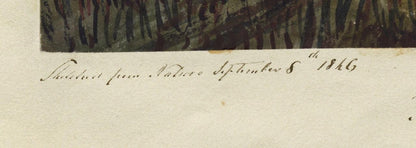 Sketched from Nature September 8th 1846